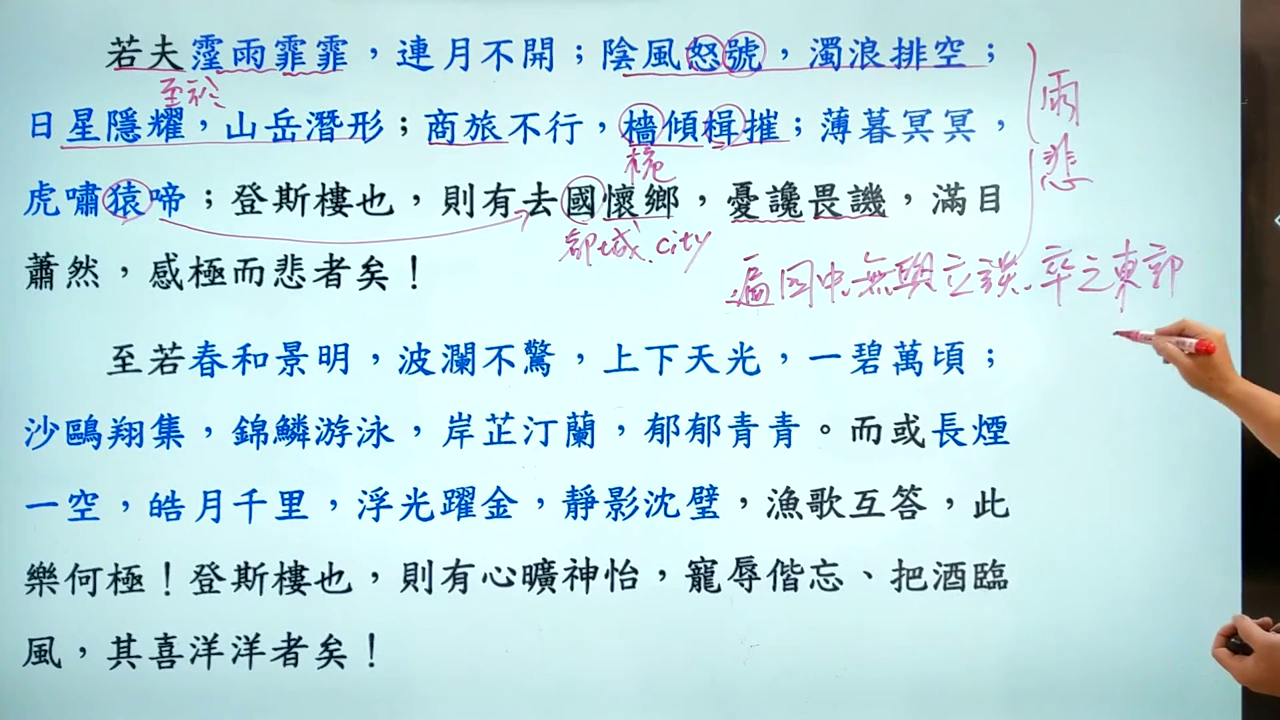 若夫霪雨霏霏，連月不開；陰風怒號，濁浪排空；
至於
雨
日星隱耀，山岳潛形；商旅不行，檣傾楫摧；薄暮冥冥，
桅
悲
虎嘯猿啼；登斯樓也，則有去國懷鄉，憂讒畏譏，滿目
都城、city
蕭然，感極而悲者矣！
遍國中無與立談、卒之東郭
至若春和景明，波瀾不驚，上下天光，一碧萬頃；
沙鷗翔集，錦鱗游泳，岸芷汀蘭，郁郁青青。而或長煙
一空，皓月千里，浮光躍金，靜影沈璧，漁歌互答，此
樂何極！登斯樓也，則有心曠神怡，寵辱偕忘、把酒臨
風，其喜洋洋者矣！